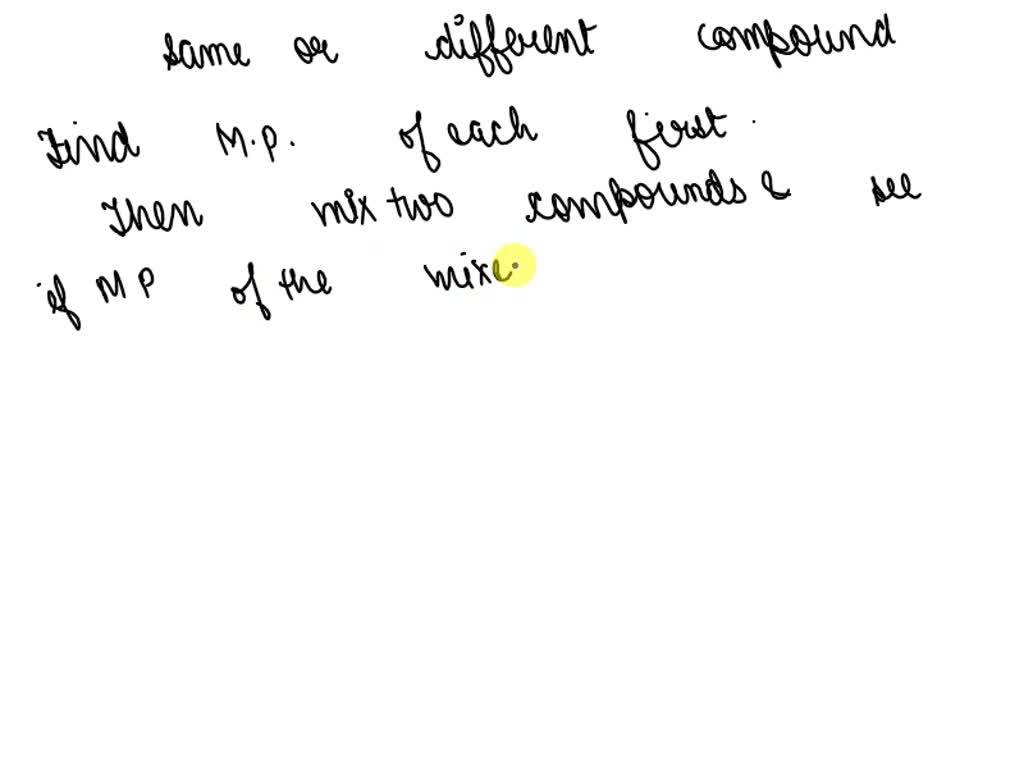 same or different compound
Find M.P. of each first.
Then mix two compounds & see
if MP of the mixe